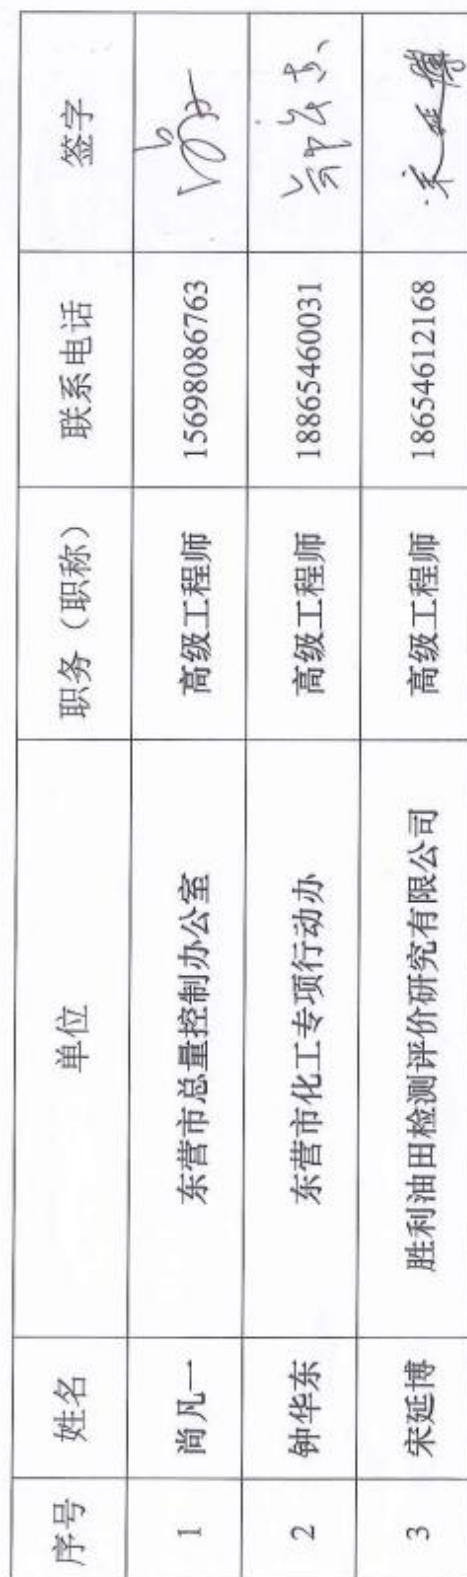 序号 姓名 单位 职务（职称） 联系电话 签字
1 尚凡一 东营市总量控制办公室 高级工程师 15698086763
2 钟华东 东营市化工专项行动办 高级工程师 18865460031 钟华东
3 宋延博 胜利油田检测评价研究有限公司 高级工程师 18654612168 宋延博